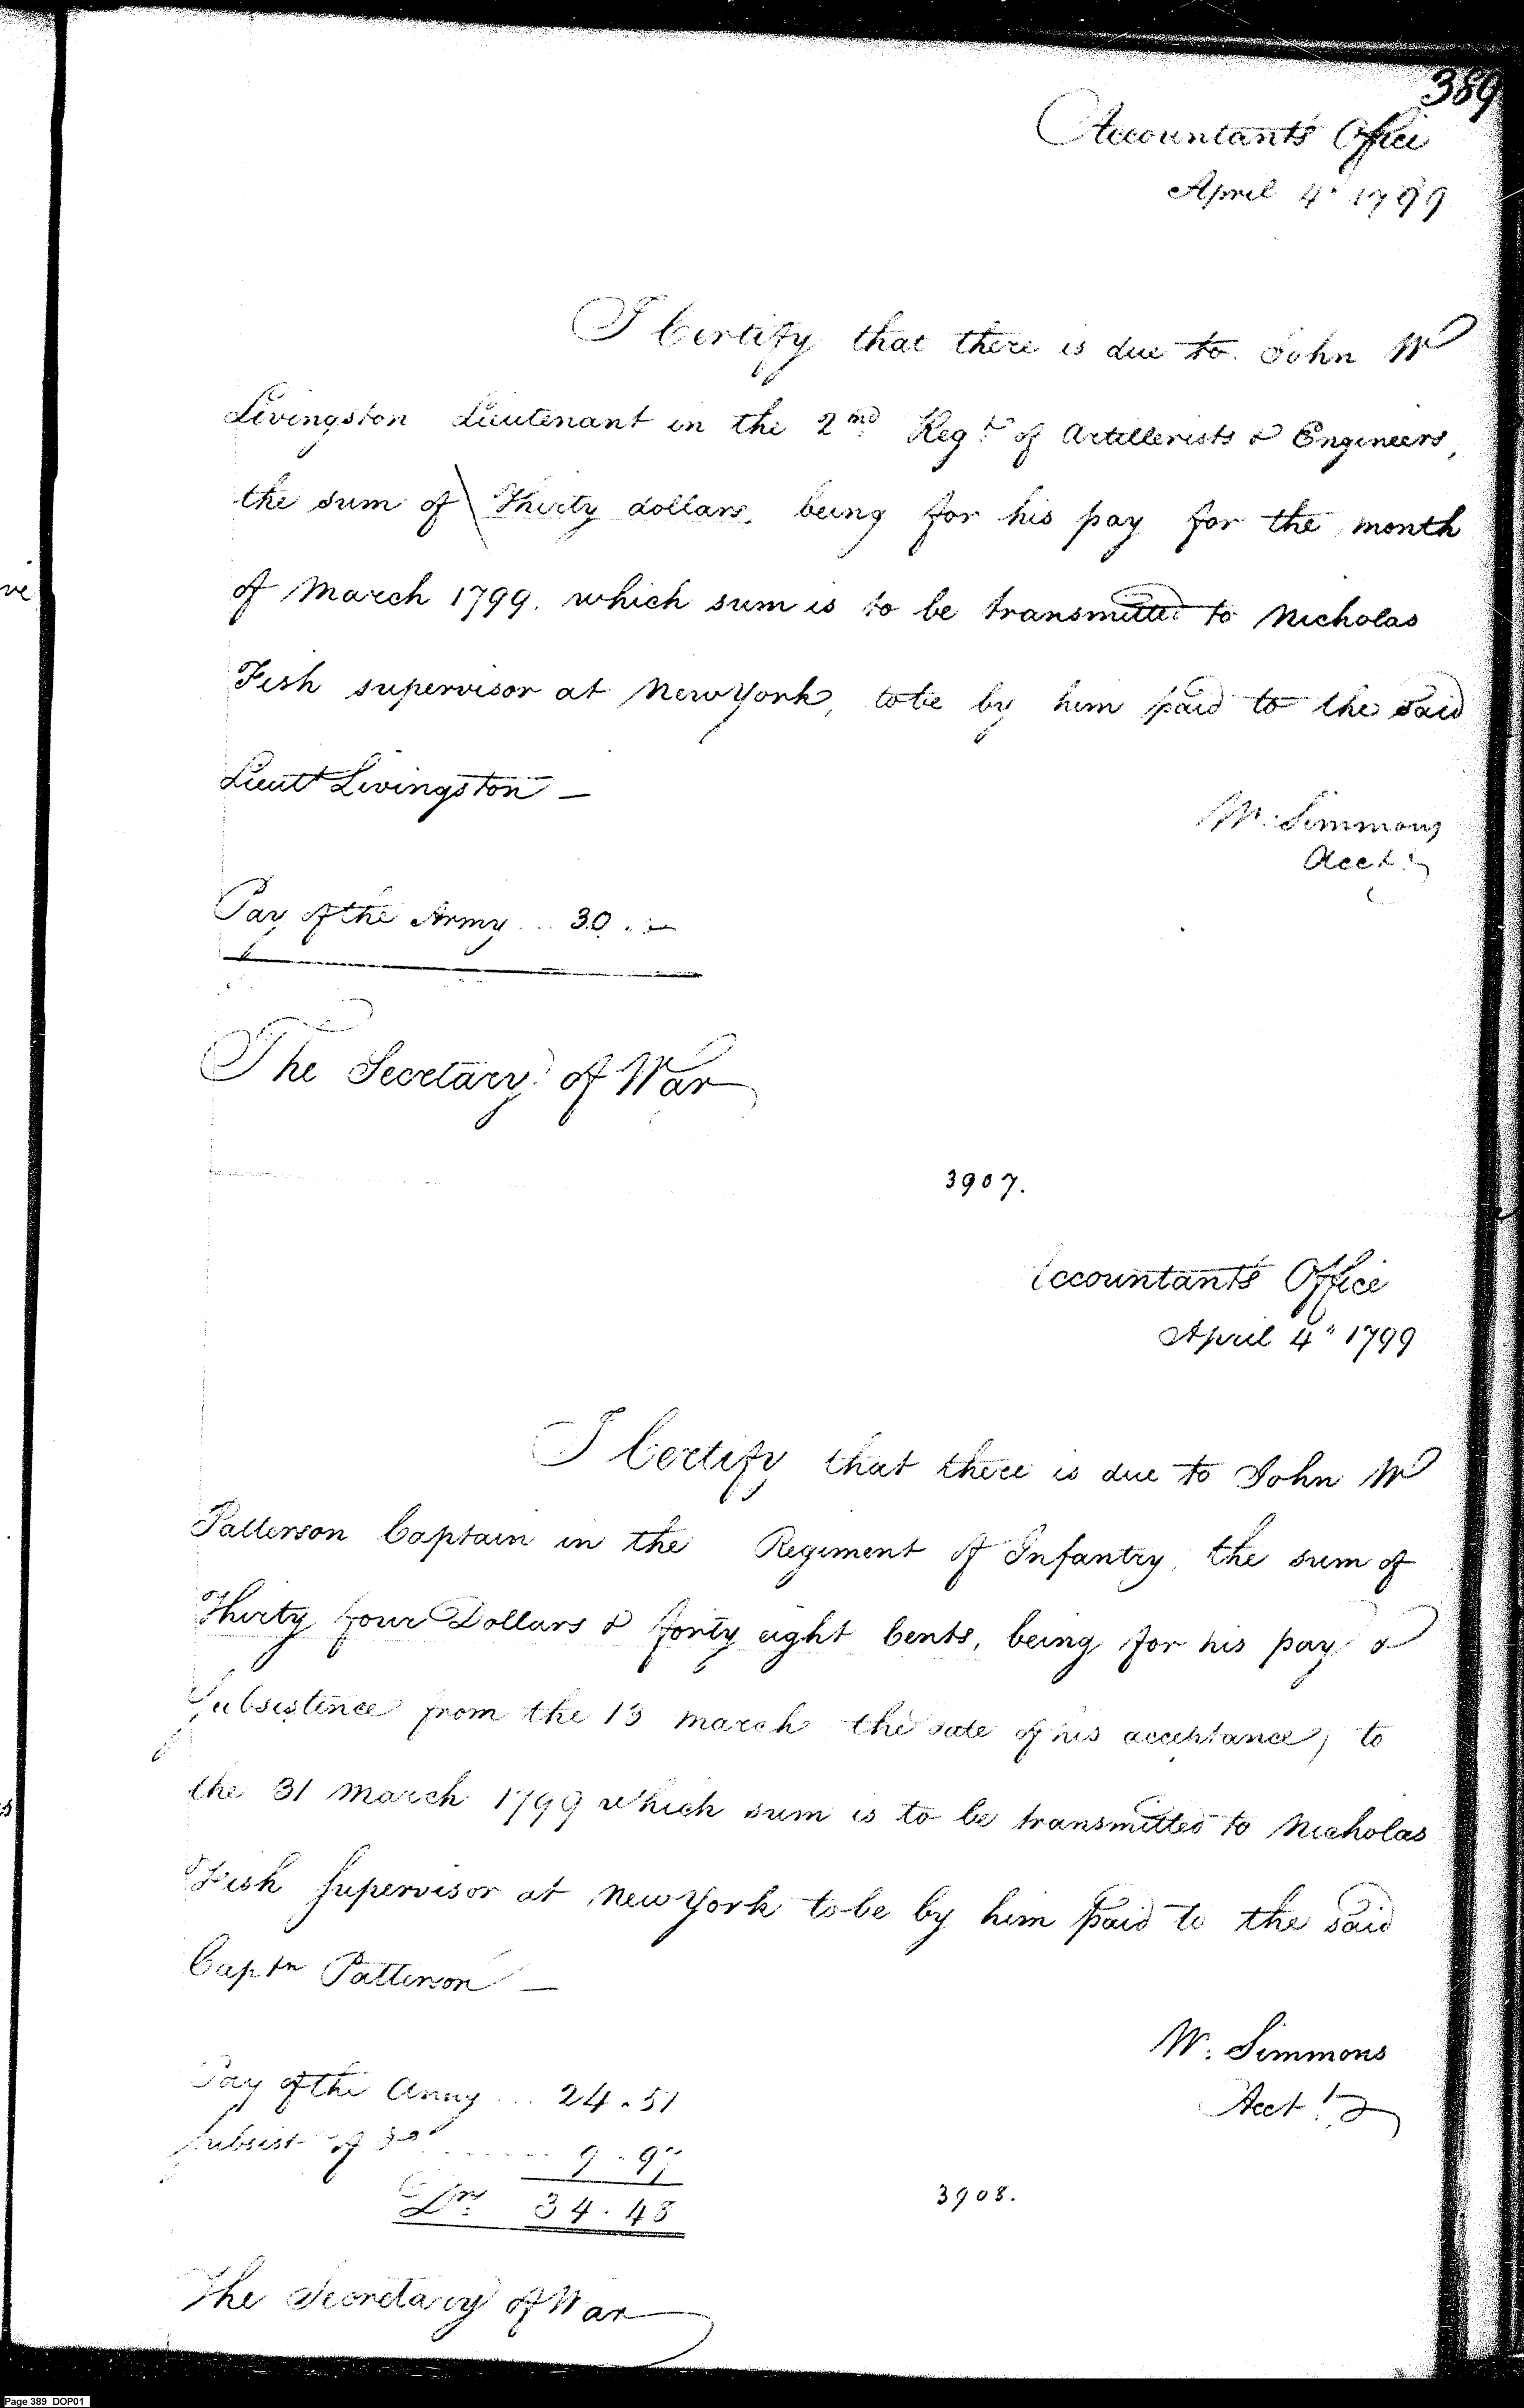 389
Accountants Office
April 4th 1799
I Certify that there is due to John W
Livingston Lieutenant in the 2nd Regt of Artillerists & Engineers,
the sum of Thirty dollars, being for his pay for the month
of March 1799. which sum is to be transmitted to Nicholas
Fish supervisor at New York, to be by him paid to the said
Lieutt Livingston —
W. Simmons
Acct.
Pay of the Army ... 30 . —
The Secretary of War
3907.
Accountants Office
April 4" 1799
I Certify that there is due to John W
Patterson Captain in the Regiment of Infantry, the sum of
Thirty four Dollars & forty eight Cents, being for his pay &
Subsistence from the 13 March the date of his acceptance, to
the 31 March 1799 which sum is to be transmitted to Nicholas
Fish Supervisor at New York to be by him paid to the said
Captn Patterson —
W. Simmons
Acct.
Pay of the Army ... 24.51
Subsist. of Do ........ 9.97
Drs. 34.48
3908.
The Secretary of War
Page 389 DOP01